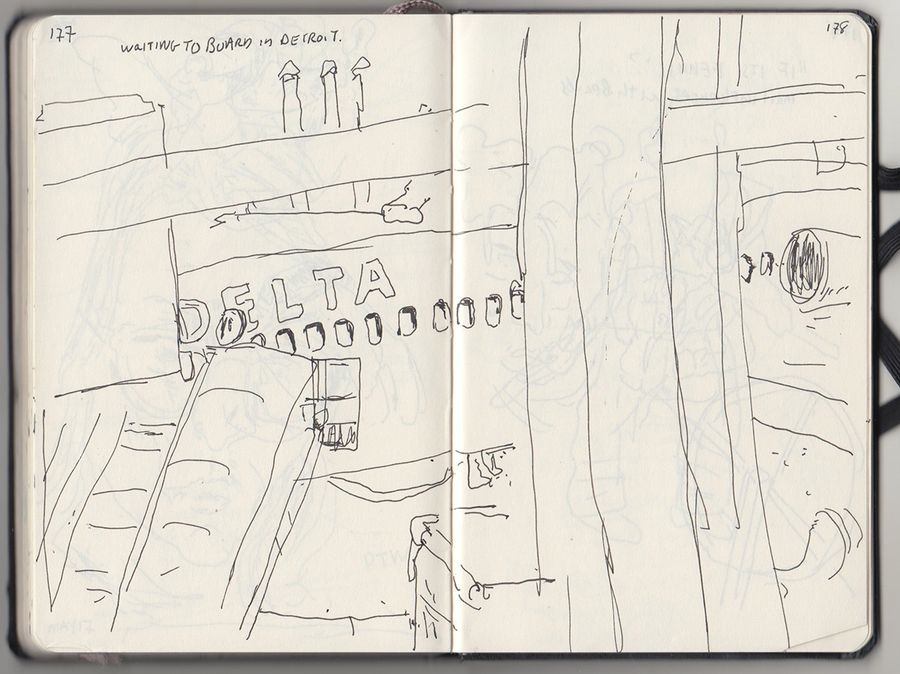 177
178
WAITING TO BOARD in DETROIT.
DELTA